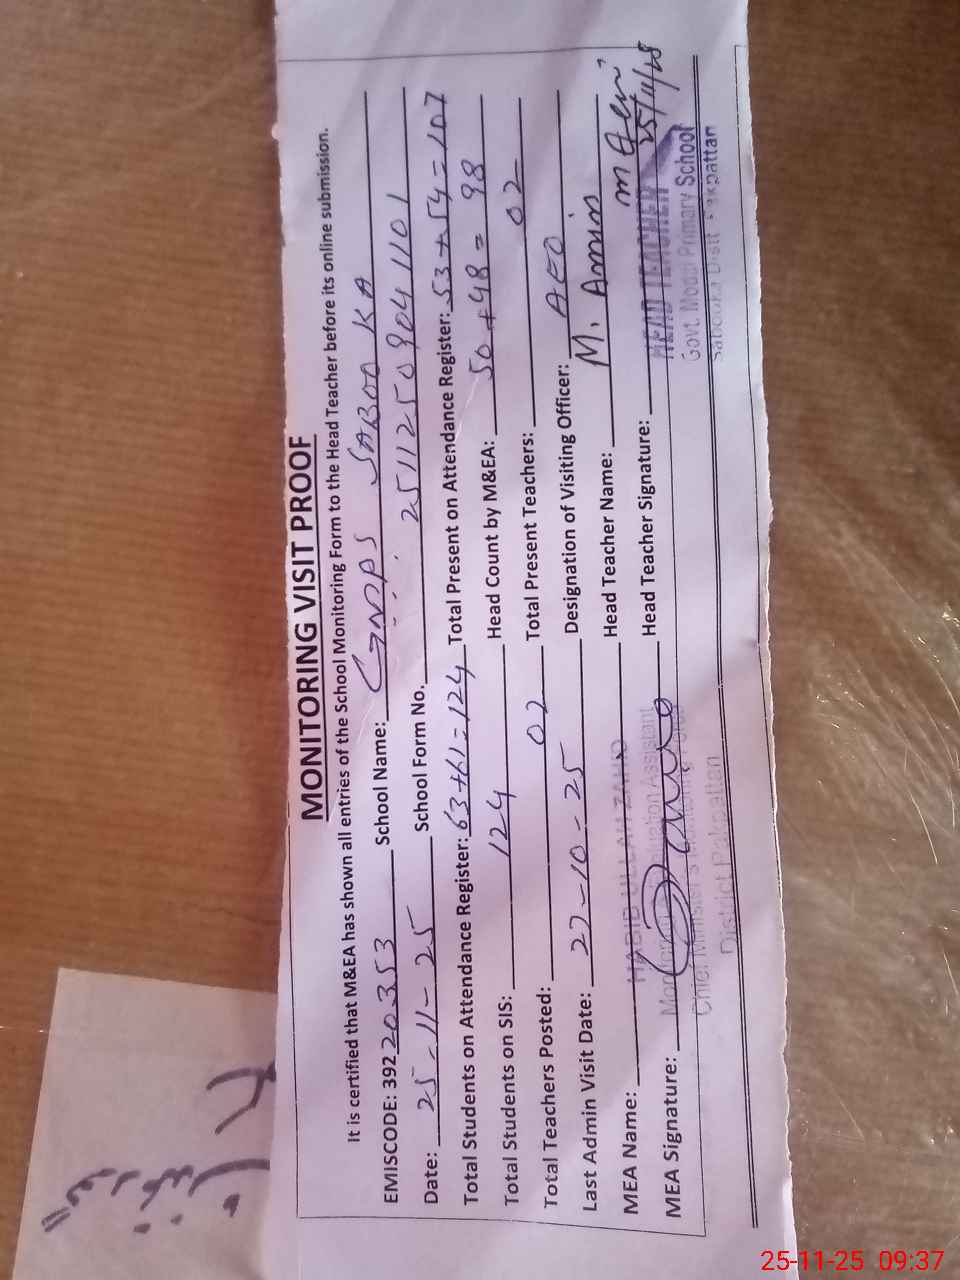 MONITORING VISIT PROOF
It is certified that M&EA has shown all entries of the School Monitoring Form to the Head Teacher before its online submission.
EMISCODE: 39220353 School Name: GMPS SABOOKA
Date: 25-11-25 School Form No. 25112509041101
Total Students on Attendance Register: 63+61=124 Total Present on Attendance Register: 53+54=107
Total Students on SIS: 124 Head Count by M&EA: 50+48=98
Total Teachers Posted: 02 Total Present Teachers: 02
Last Admin Visit Date: 27-10-25 Designation of Visiting Officer: AEO
MEA Name: HABIB ULLAH ZAHID Head Teacher Name: M. Amin
MEA Signature: Head Teacher Signature: 
Monitoring & Evaluation Assistant
Chief Minister's Monitoring Force
District Pakpattan
HEAD TEACHER
Govt. Model Primary School
Sabooka Distt Pakpattan
25-11-25 09:37